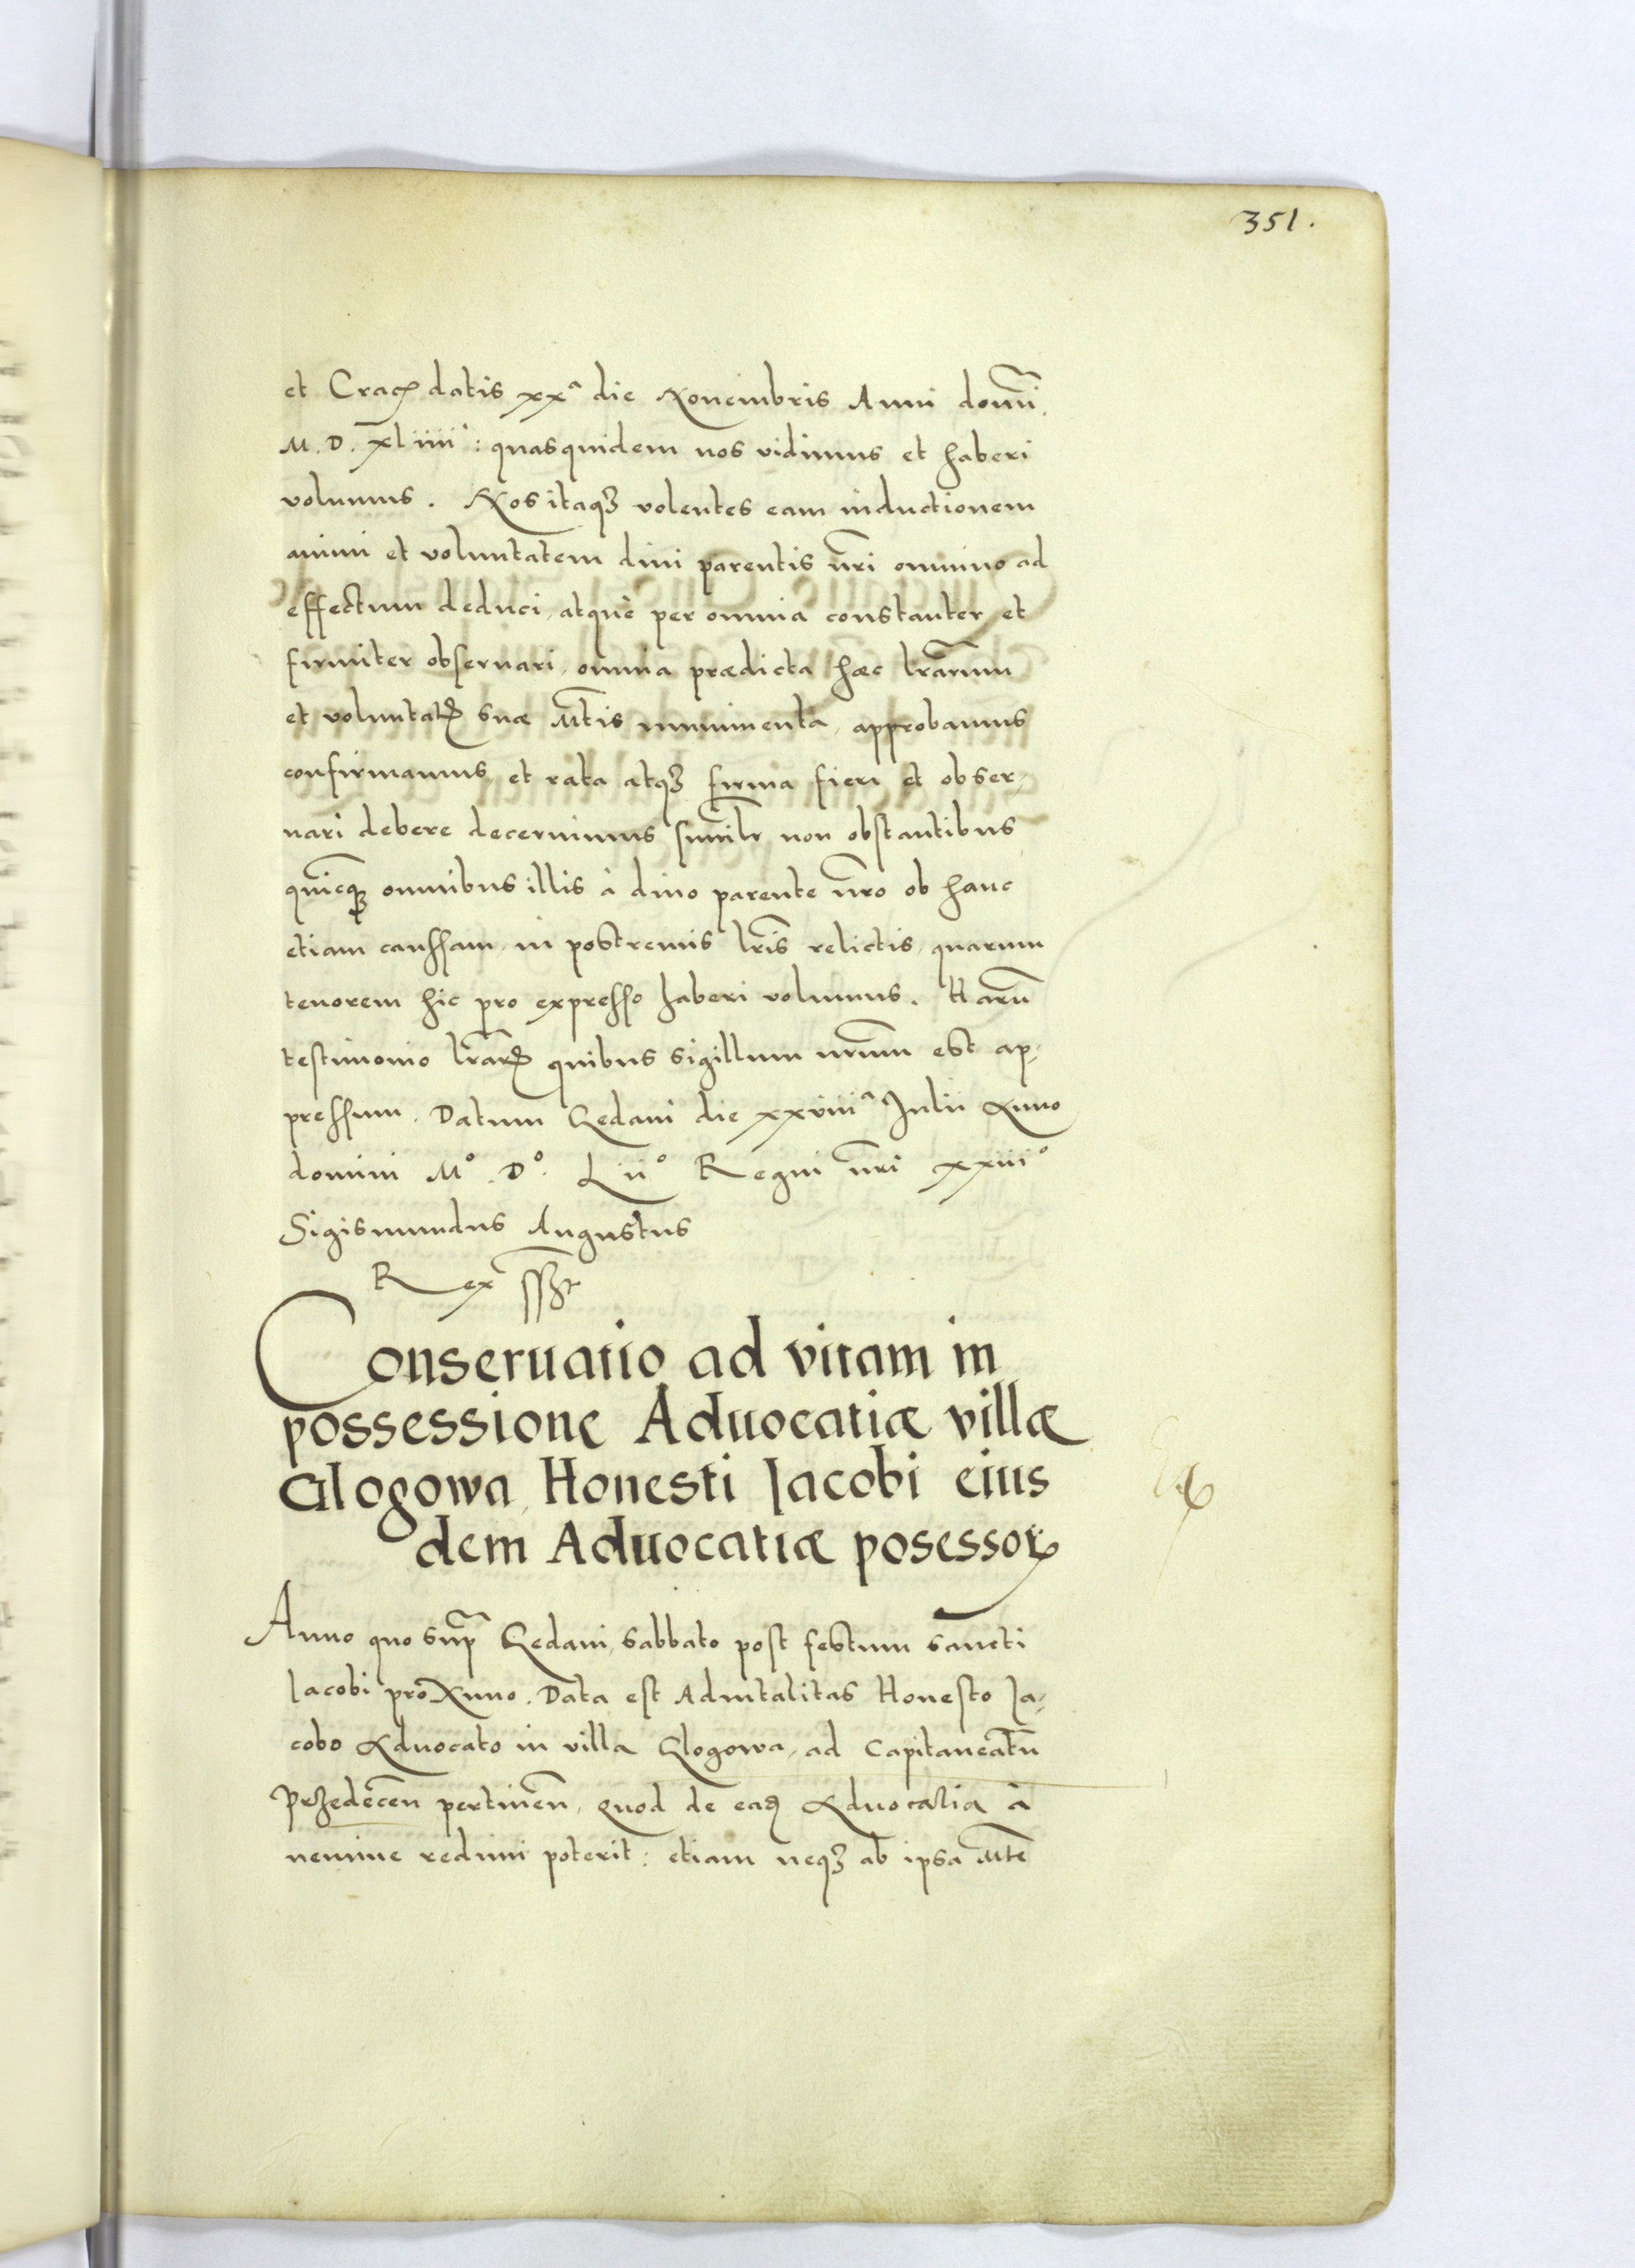 351.
et Crac datis xxª die Nouembris Anni domi
M. D. xliiii°: quasquidem nos vidimus et haberi
volumus. Nos itaqꝫ volentes eam inductionem
animi et voluntatem diui parentis nr̃i omnino ad
effectum deduci, atque per omnia constanter et
firmiter obseruari, omnia prædicta hæc lr̃arum
et voluntatꝭ suæ Mt̃is munimenta, approbamus
confirmamus et rata atqꝫ firma fieri et obser-
uari debere decernimus similr̃ non obstantibus
quicqꝫ omnibus illis à diuo parente nr̃o ob hanc
etiam caussam in postremis lr̃is relictis, quarum
tenorem hic pro expresso haberi volumus. Harũ
testimonio lr̃arꝭ quibus sigillum nr̃um est ap-
pressum. Datum Gedani die xxviiiª Julii Anno
domini M° . D°. Lii° Regni nr̃i xxiii°
Sigismundus Augustus
Rex sst
Conseruatio ad vitam in
possessione Aduocatiæ villæ
Glogowa, Honesti Jacobi eius
dem Aduocatiæ posessoꝝ
Anno quo sup̃ Gedani, sabbato post festum sancti
Jacobi proximo. Data est Aduitalitas Honesto Ja-
cobo Aduocato in villa Glogowa, ad Capitaneatũ
Przedecen̄ pertinen̄, Quod de eadꝫ Aduocatia à
nemine redimi poterit: etiam neqꝫ ab ipsa Mt̃e